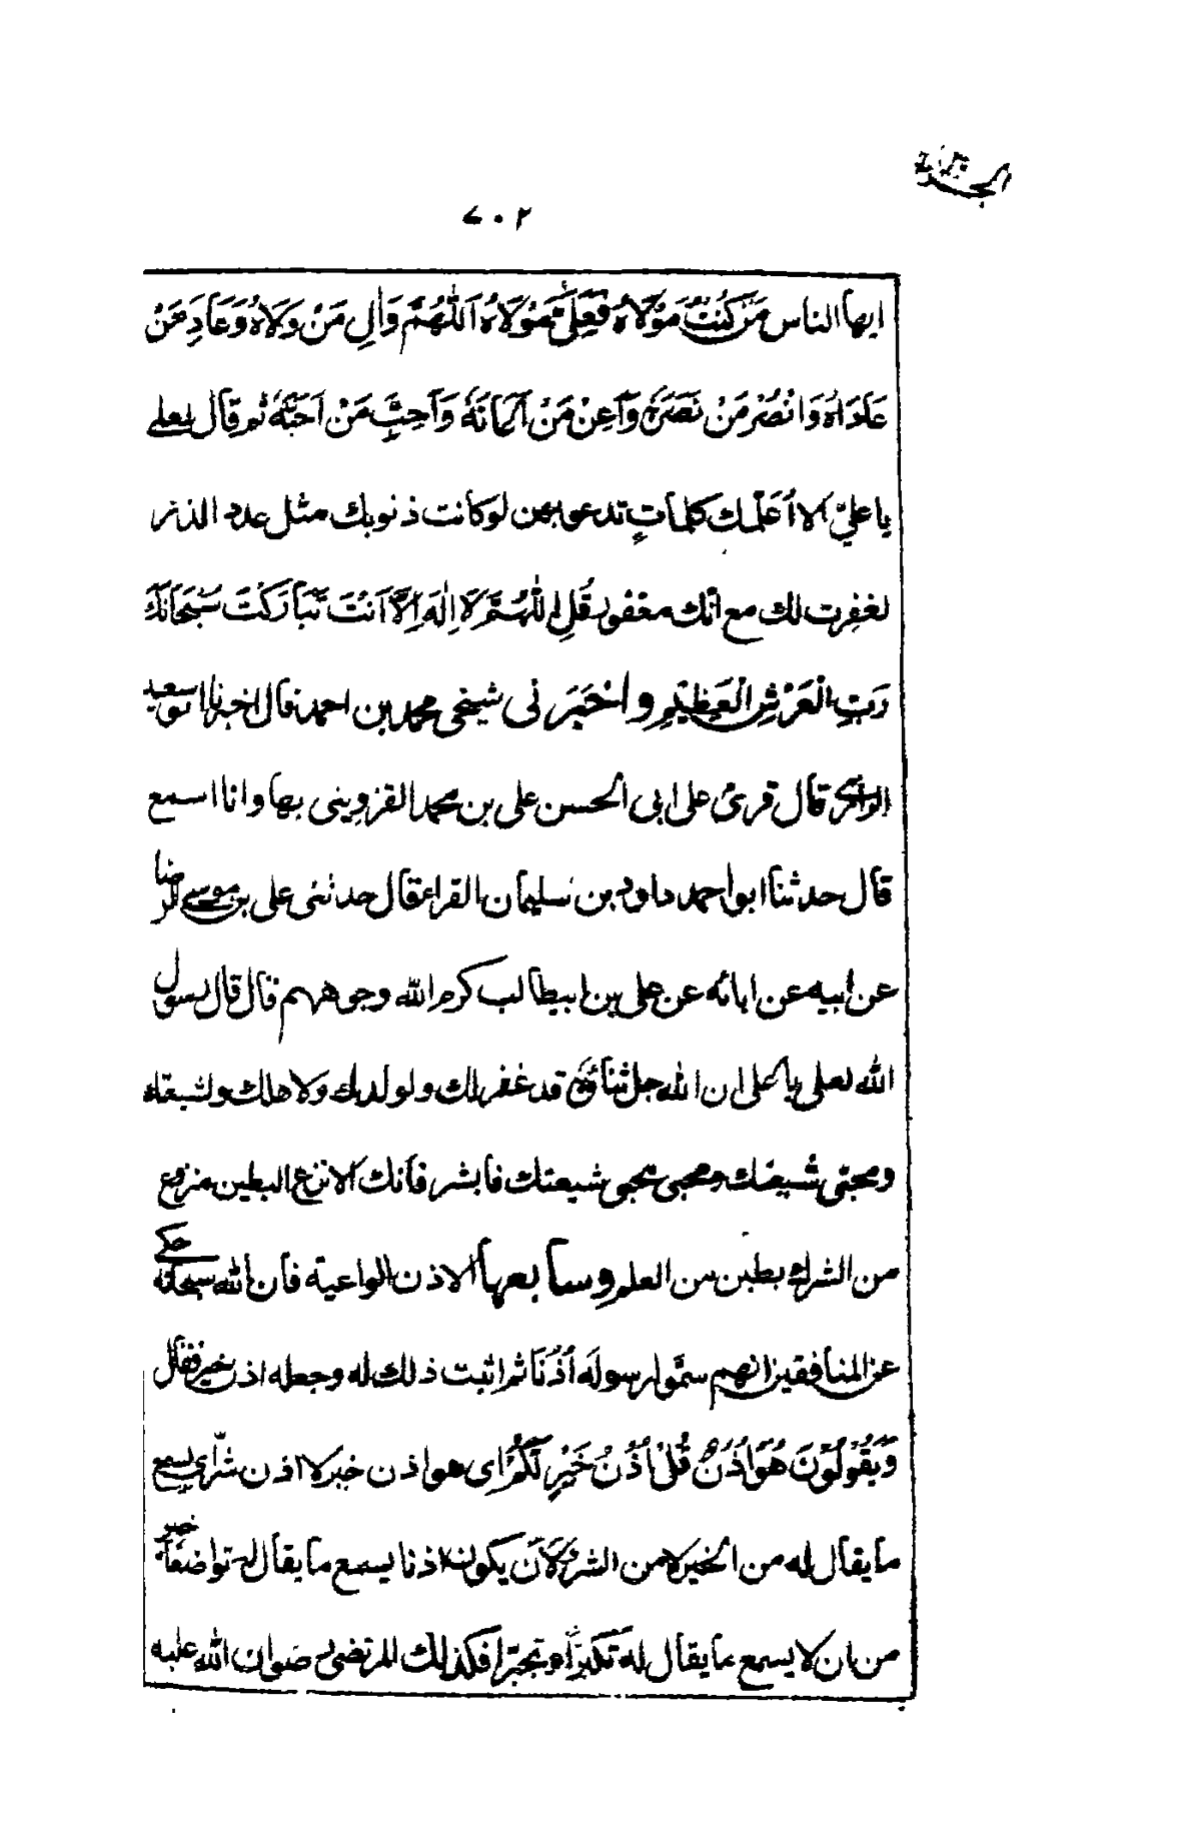 ٧٠٢
ايها الناس مَنْ كُنْتُ مَوْلَاهُ فَعَلِيٌّ مَوْلَاهُ اَللّٰهُمَّ وَالِ مَنْ وَلَاهُ وَعَادِ مَنْ
عَادَاهُ وَانْصُرْ مَنْ نَصَرَهُ وَاَعِنْ مَنْ اَعَانَهُ وَاَحِبَّ مَنْ اَحَبَّهُ ثم قال لعلي
يا عليّ الا اُعَلّمك كلماتٍ تدعو بهن لو كانت ذنوبك مثل عدد الذر
لغفِرت لك مع انّك مغفور قُلِ اللّٰهُمَّ لَا اِلٰهَ اِلَّا اَنْتَ تَبَارَكْتَ سُبْحَانَكَ
رَبِّ الْعَرْشِ الْعَظِيْمِ و اَخْبَرَنى شيخى محمد بن احمد قال اخبرنا ابو سعيد
قال قرئ على ابى الحسن على بن محمد القزوينى بها وانا اسمع
قال حدثنا ابو احمد داود بن سليمان الفراء قال حدثنى على بن موسى الرضا
عن ابيه عن ابائه عن على بن ابيطالب كرم الله وجوههم قال قال رسول
الله لعلى يا على ان الله جل ثناؤه قد غفر لك ولولدك ولاهلك ولشيعتك
ومحبّى شيعتك ومحبى محبى شيعتك فابشر فانك الانزع البطين منزوع
من الشرك بطين من العلم وسابعها الاذن الواعية فان الله سبحانه حكى
عن المنافقين انهم سمّوا رسوله اُذُنًا ثم اثبت ذلك له وجعله اذن خير فقال
وَيَقُوْلُوْنَ هُوَ اُذُنٌ قُلْ اُذُنُ خَيْرٍ لَكُمْ اى هو اذن خير لا اذن شرّ اى يسمع
ما يقال له من الخير لا من الشر ولَاَن يكون اذنا يسمع ما يقال له تواضعًا خير
من ان لا يسمع ما يقال له تكبرًا وتجبرًا فكذلك للمرتضى رضوان الله عليه